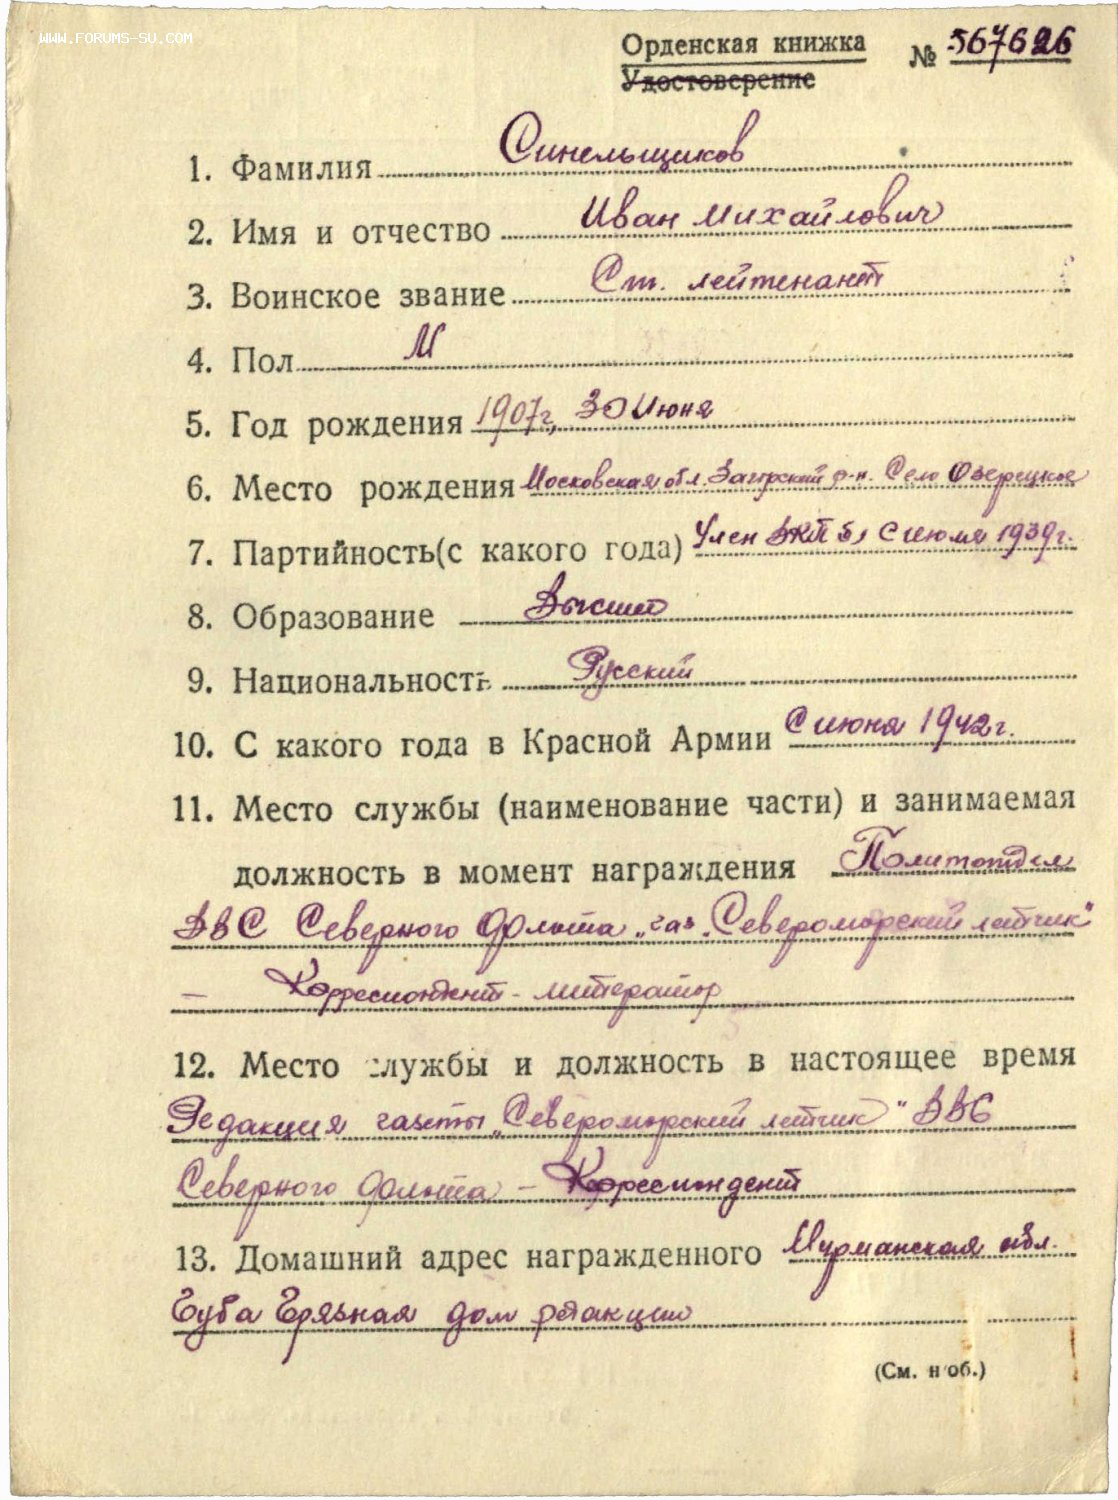 WWW.FORUMS-SU.COM
Орденская книжка № 567626
Удостоверение
1. Фамилия Синельщиков
2. Имя и отчество Иван Михайлович
3. Воинское звание Ст. лейтенант
4. Пол М
5. Год рождения 1907г, 30 Июня
6. Место рождения Московская обл. Загорский р-н. Село Озерецкое
7. Партийность(с какого года) Член ВКП б, с июля 1939г.
8. Образование Высшее
9. Национальность Русский
10. С какого года в Красной Армии С июня 1942г.
11. Место службы (наименование части) и занимаемая
должность в момент награждения Политотдел
ВВС Северного Флота „газ. „Североморский летчик"
– Корреспондент - литератор
12. Место службы и должность в настоящее время
Редакция газеты „Североморский летчик" ВВС
Северного флота – Корреспондент
13. Домашний адрес награжденного Мурманская обл.
Губа Грязная дом редакции
(См. н об.)